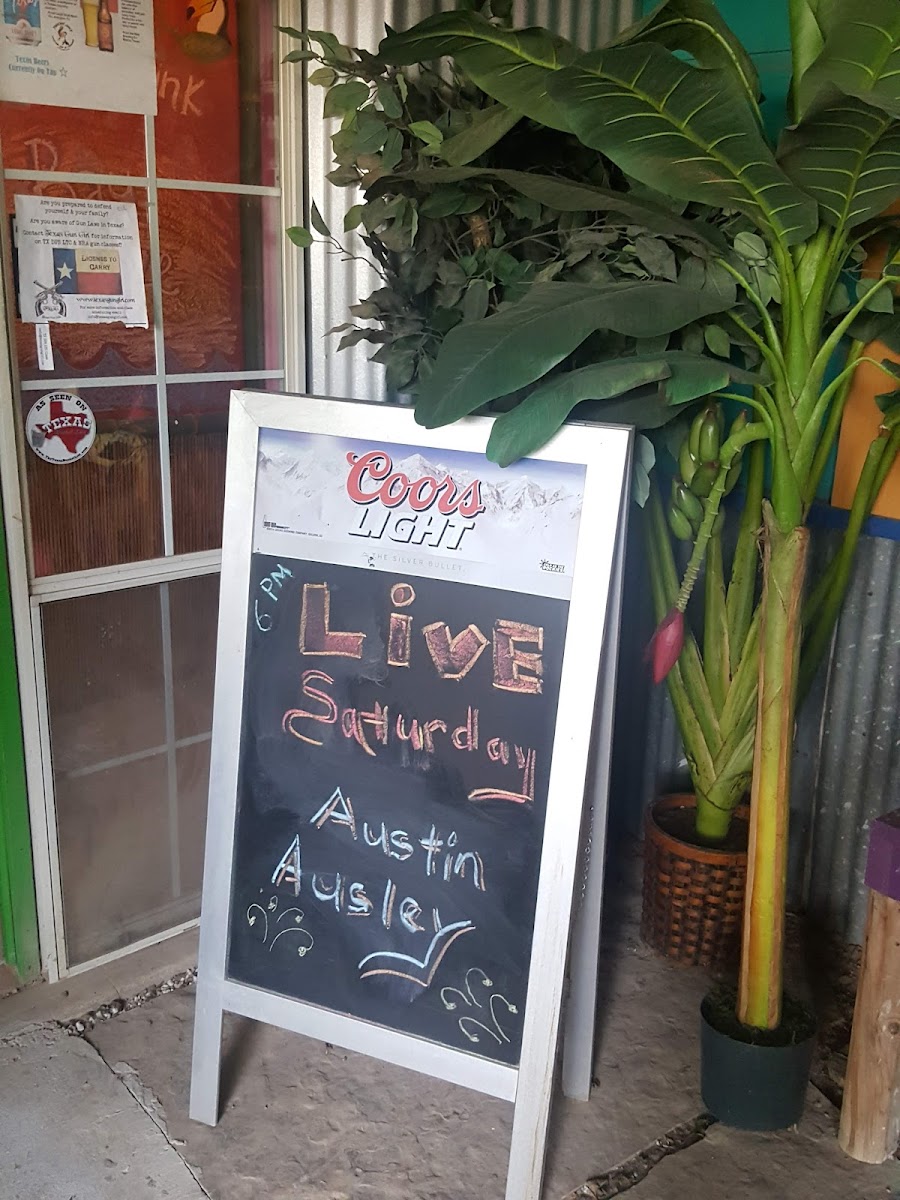 Texas Beers
Currently On Tap
nk
Are you prepared to defend
yourself & your family?
Are you aware of Gun Laws in Texas?
Contact Texas Gun Girl for information
on TX DPS LTC & NRA gun classes!!
LICENSE TO
CARRY
AS SEEN ON
TEXAS
Coors
LIGHT
THE SILVER BULLET.
6 PM
Live
Saturday
Austin
Ausley